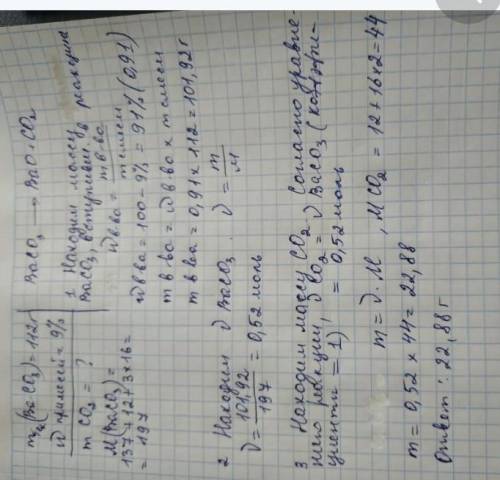 m(BaCO3) = 112 г
ω примесей = 9%
m CO2 = ?
M(BaCO3) =
137+12+3×16=
= 197
BaCO3 → BaO + CO2
1 Находим массу
BaCO3, вступивш. в реакцию
ω в-ва = m в-ва / m смеси
ω в-ва = 100 - 9% = 91% (0,91)
m в-ва = ω в-ва × m смеси
m в-ва = 0,91 × 112 = 101,92 г
2 Находим ν BaCO3. ν = m/M
ν = 101,92/197 = 0,52 моль
3 Находим массу CO2 Согласно уравне-
нию реакции, ν CO2 = ν BaCO3 (коэффи-
циенты = 1) = 0,52 моль
m = ν · M , M CO2 = 12 + 16×2 = 44
m = 0,52 × 44 = 22,88
Ответ: 22,88 г